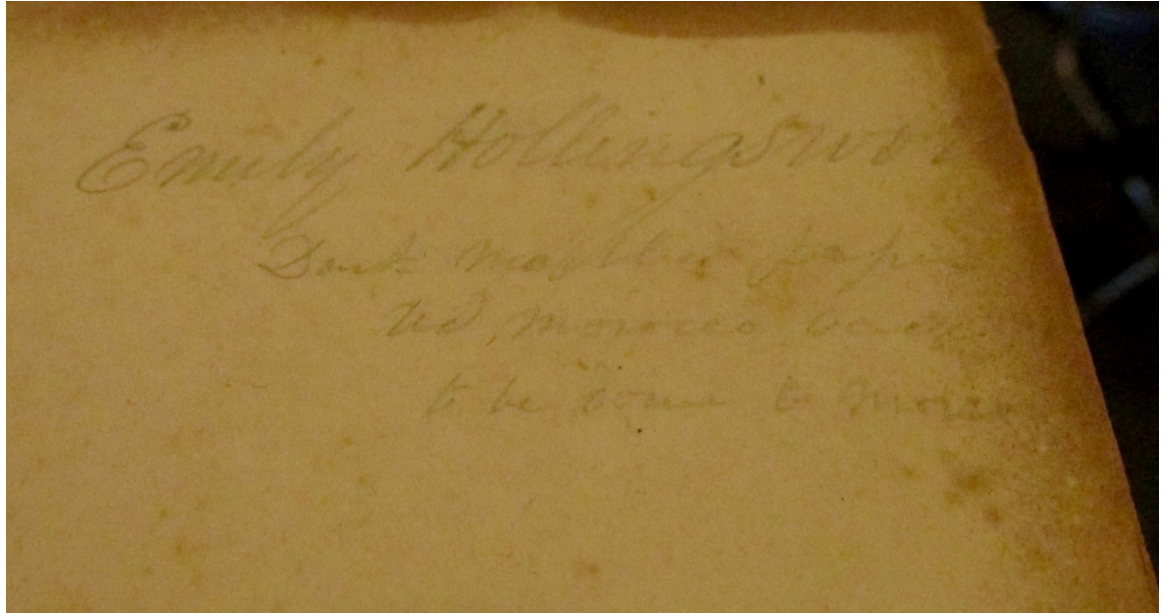 Emily Hollingswor
Dark marbled pape
red morocco back
to be done to morrow